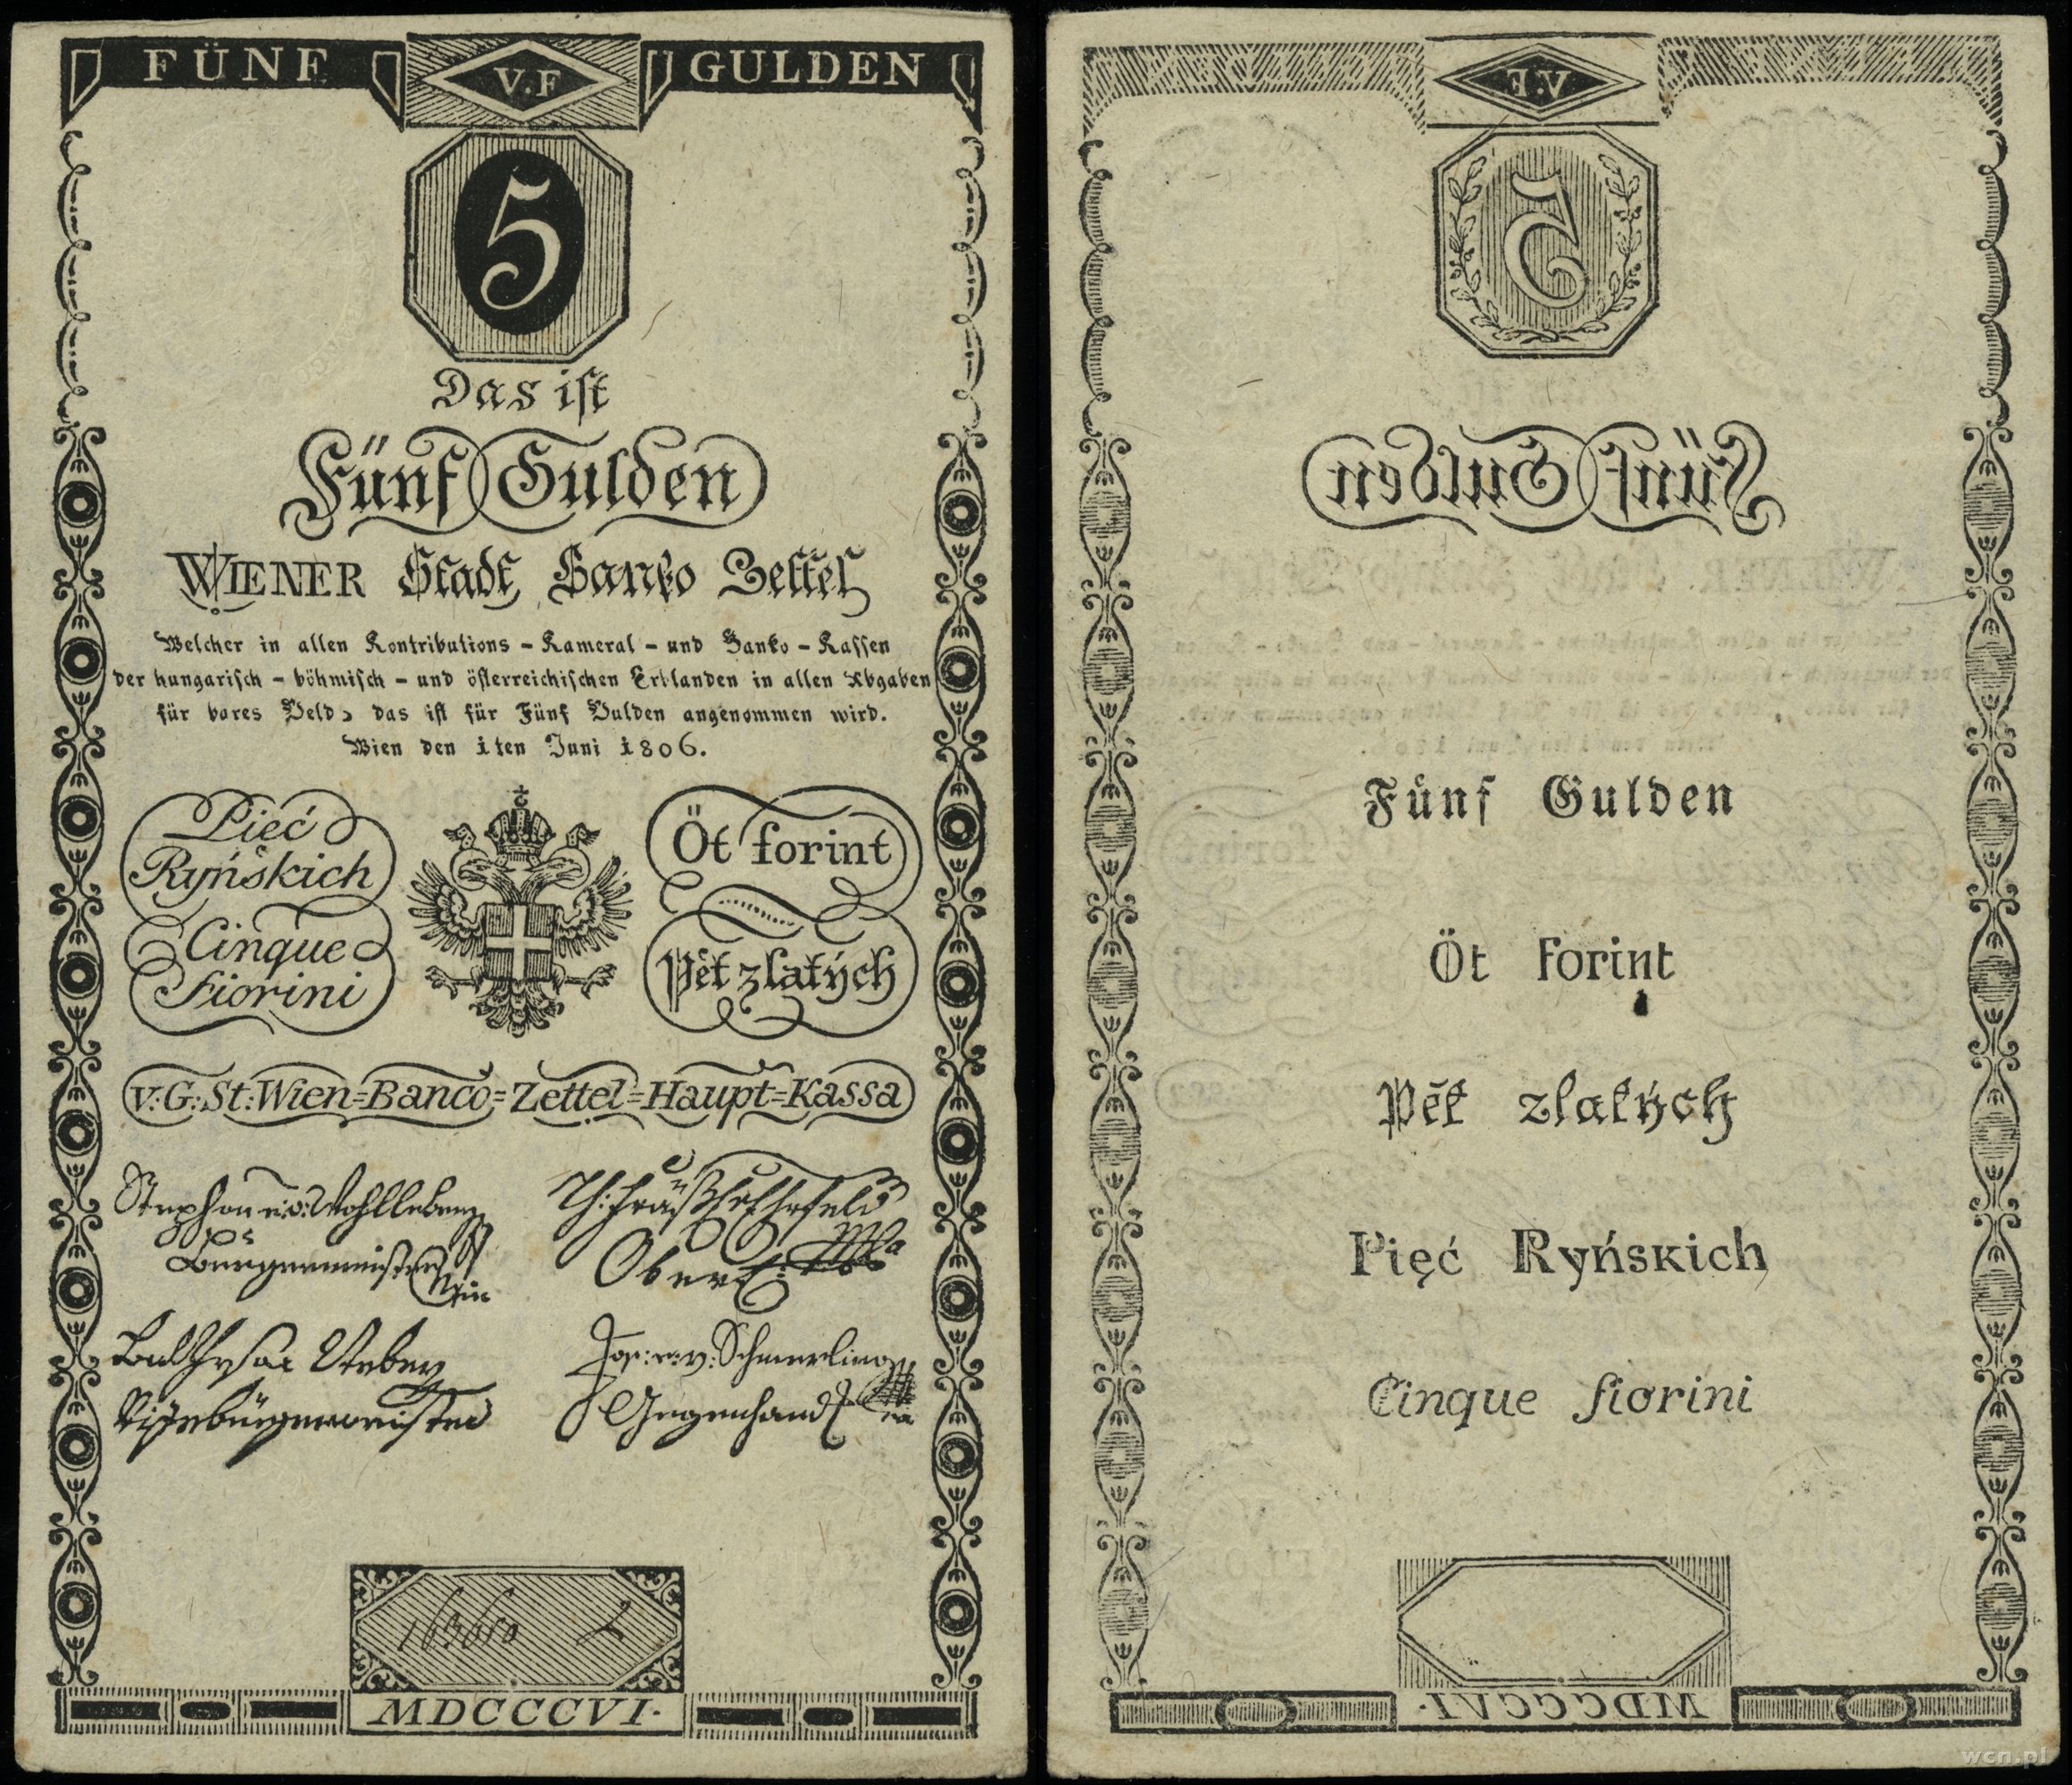 FÜNF V.F GULDEN
5
Das ist
Fünf Gulden
WIENER Stadt Banko Zettel
Welcher in allen Kontributions - Kameral - und Banko - Kassen
der hungarisch - böhmisch - und österreichischen Erblanden in allen Abgaben
für bares Geld, das ist für Fünf Gulden angenommen wird.
Wien den 1ten Juni 1806.
Pięć
Ryńskich
Cinque
fiorini
Öt forint
Pět zlatých
v: G: St: Wien=Banco=Zettel=Haupt=Kassa
Stephan e: v: Wohlleben
Bürgermeister
Wien
Vizebürgermeister
Jos: e: v: Schmerling
Gegenhand
2
MDCCCVI.
V.F
5
Fünf Gulden
Fünf Gulden
Öt forint
Pět zlatých
Pięć Ryńskich
Cinque fiorini
MDCCCVI.
wcn.pl